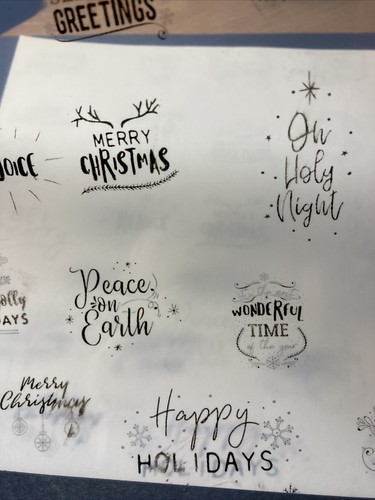 GREETINGS
MERRY
CHRISTMAS
Oh
Holy
Night
Peace
on
Earth
WONDERFUL
TIME
of the year
Merry
Christmas
Happy
HOLIDAYS